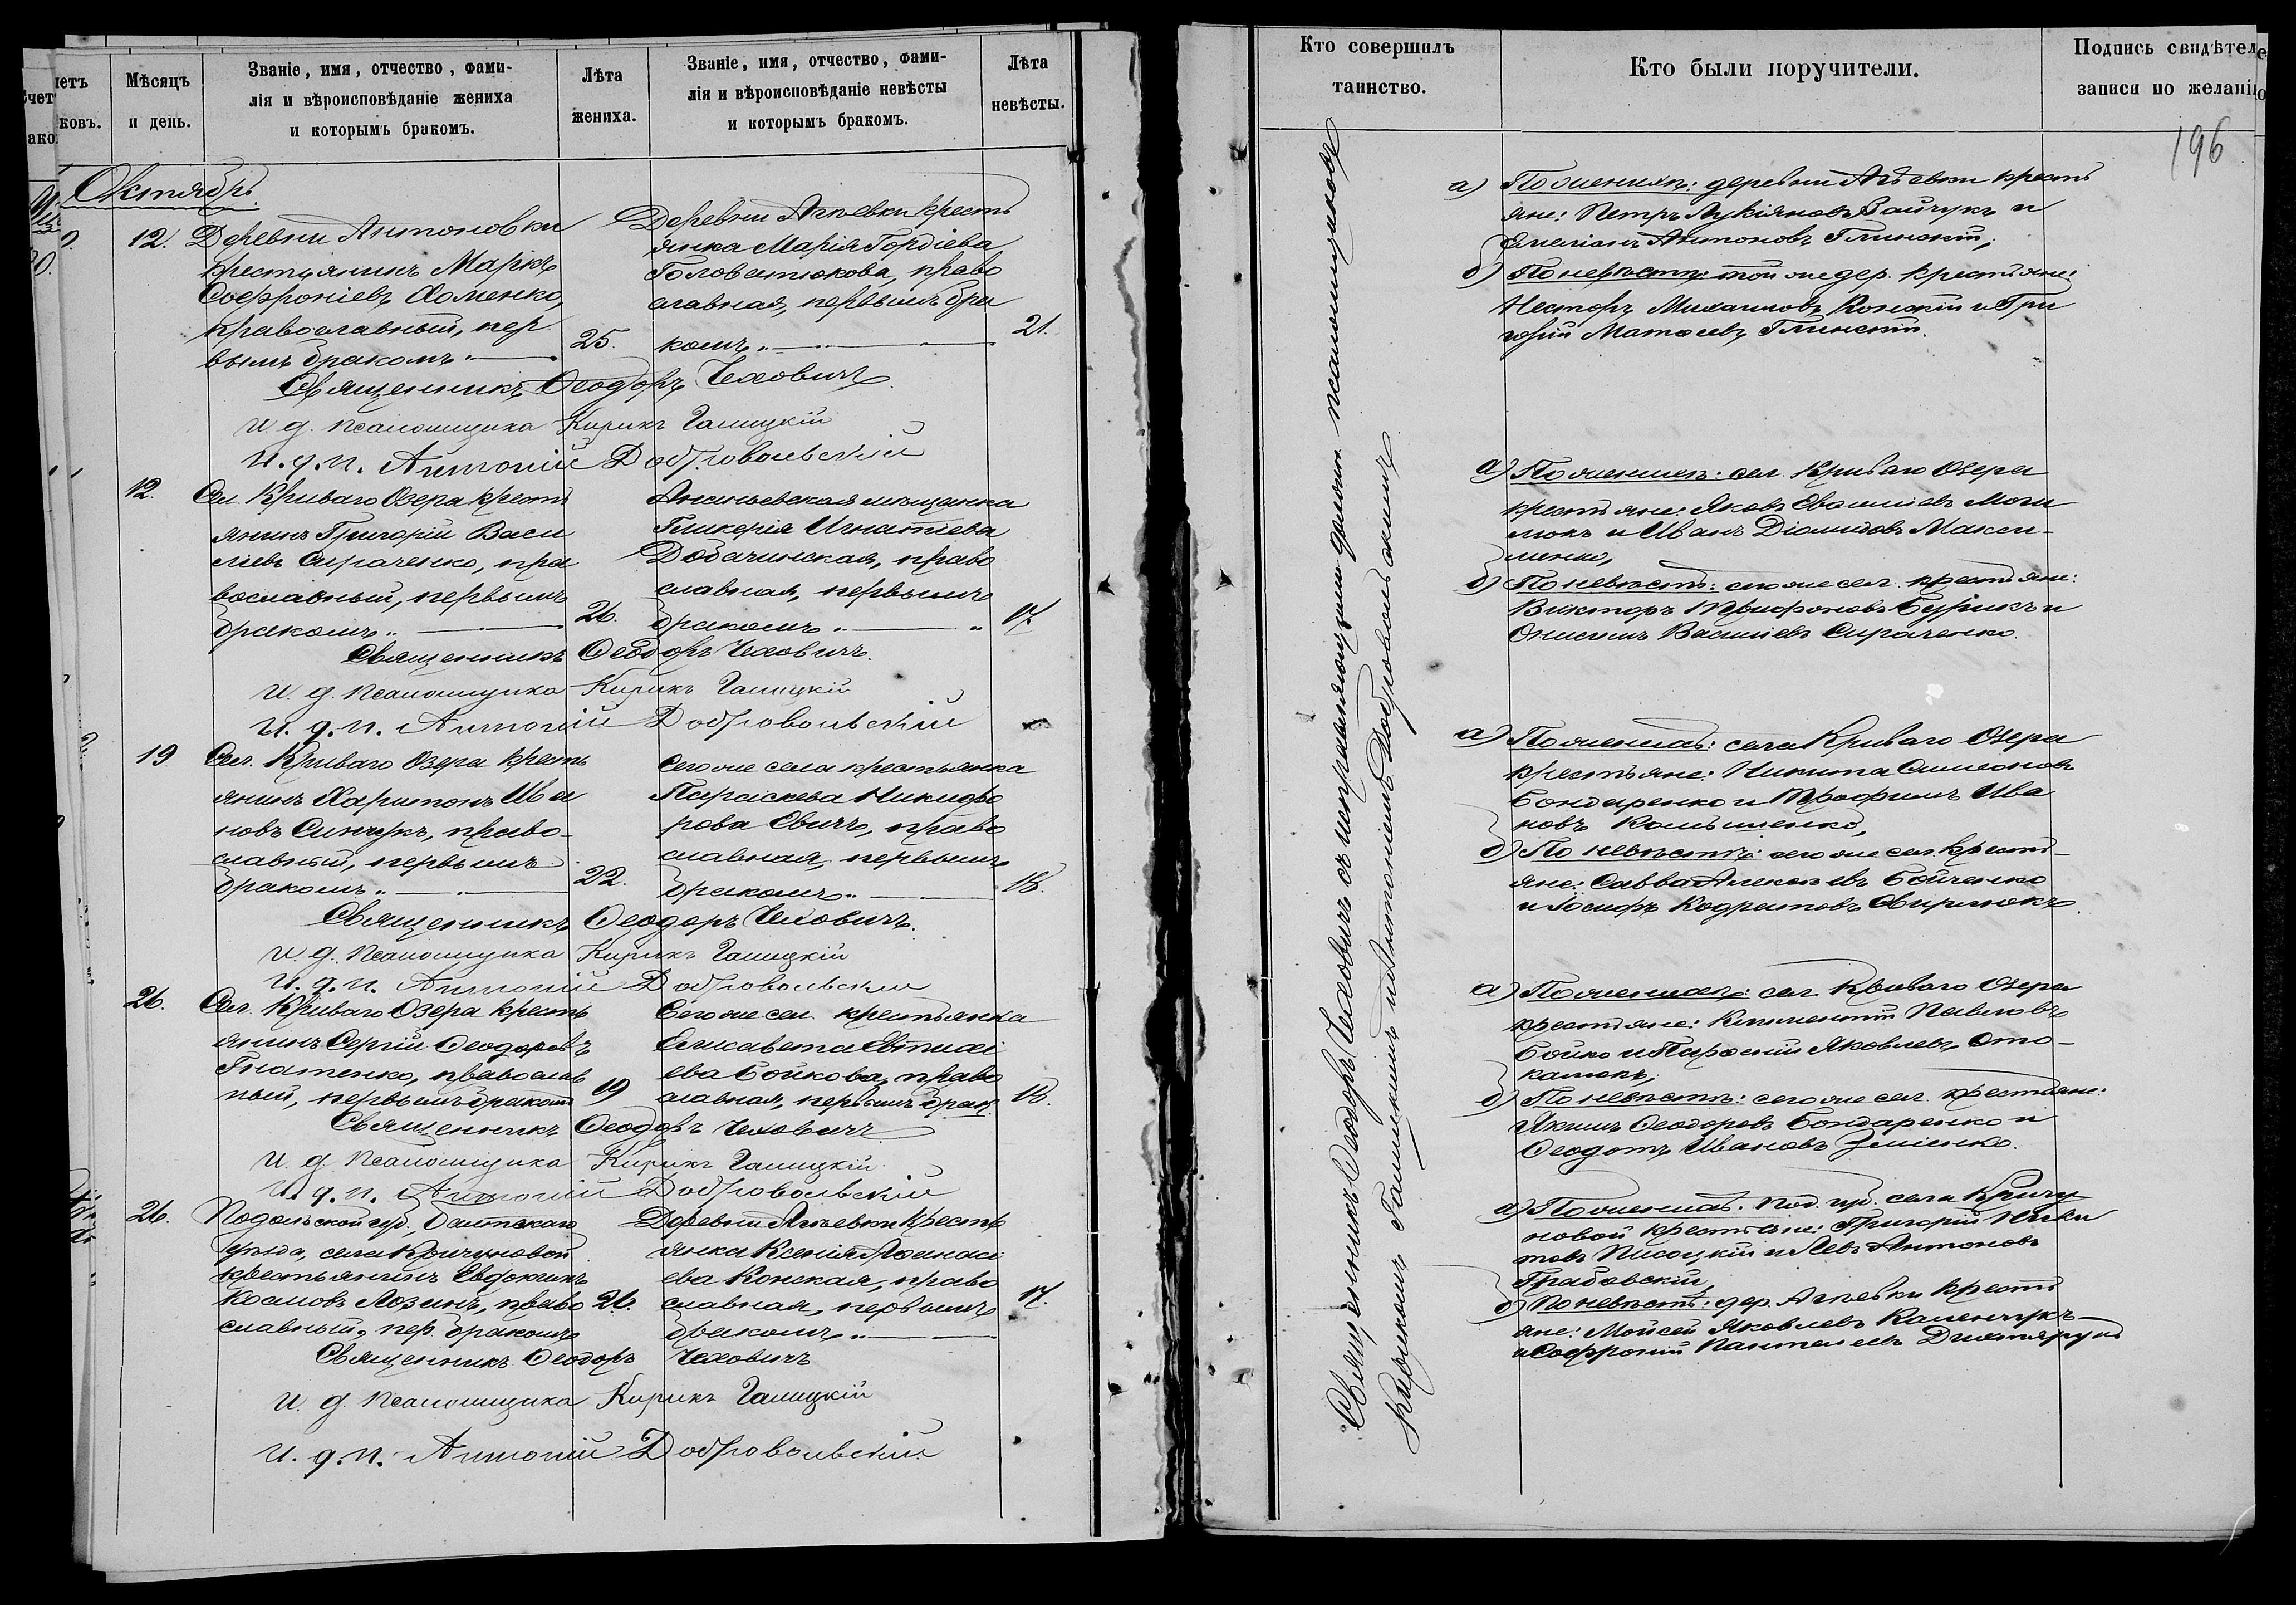 Мѣсяцъ
и день.
Званіе, имя, отчество, фами-
лія и вѣроисповѣданіе жениха
и которымъ бракомъ.
Лѣта
жениха.
Званіе, имя, отчество, фами-
лія и вѣроисповѣданіе невѣсты
и которымъ бракомъ.
Лѣта
невѣсты.
Октябрь.
12.
Деревни Антоновки
крестьянинъ Маркъ
Софроніевъ Хоменко,
православный, пер
вымъ бракомъ
25.
Деревни Агѣевки кресть
янка Марія Гордіева
Головатюкова, право
славная, первымъ бра
комъ
21.
Священникъ Ѳеодоръ Чеховичъ
и. д. псаломщика Кирикъ Галицкій
и. д. п. Антоній Добровольскій
12.
Сел. Криваго Озера кресть
янинъ Григорій Васи
ліевъ Сираченко, пра
вославный, первымъ
бракомъ
26.
Ананьевская мѣщанка
Гликерія Игнатіева
Добачинская, право
славная, первымъ
бракомъ
17.
Священникъ Ѳеодоръ Чеховичъ.
и. д. псаломщика Кирикъ Галицкій
и. д. п. Антоній Добровольскій
19
Сел. Криваго Озера кресть
янинъ Харитонъ Ива
новъ Синчукъ, право-
славный, первымъ
бракомъ
22.
Сего же села крестьянка
Параскева Никифо
рова Евичъ, право
славная, первымъ
бракомъ
18.
Священникъ Ѳеодоръ Чеховичъ.
и. д. псаломщика Кирикъ Галицкій
и. д. п. Антоній Добровольскій
26.
Сел. Криваго Озера кресть
янинъ Сергій Ѳеодоровъ
Гнатенко, православ
ный, первымъ бракомъ
19
Сего же сел. крестьянка
Елисавета
ева Бойкова, право
славная, первымъ брак
18.
Священникъ Ѳеодоръ Чеховичъ
и. д. псаломщика Кирикъ Галицкій
и. д. п. Антоній Добровольскій
26.
Подольской губ. Балтскаго
уѣзда, села Кричуновой
крестьянинъ Евдокимъ
Космовъ Лозинъ, право
славный, пер. бракомъ
26.
Деревни Агѣевки кресть
янка Ксенія Аѳанасі
ева Конская, право
славная, первымъ
бракомъ
17.
Священникъ Ѳеодоръ Чеховичъ
и. д. псаломщика Кирикъ Галицкій
и. д. п. Антоній Добровольскій
Кто совершилъ
таинство.
Кто были поручители.
Подпись свидѣтел
записи по желанію
196
Священникъ Ѳеодоръ Чеховичъ съ исправляющими должн. псаломщиковъ
Кирикомъ Галицкимъ и Антоніемъ Добровольскимъ
а) По женихѣ: деревни Агѣевки кресть
яне: Петръ Лукіяновъ Зайчукъ и
Емеліанъ Антоновъ Глинскій,
б) По невѣстѣ: той же дер. крестьяне:
Несторъ Михаиловъ Конскій и Гри
горій Матѳеевъ Глинскій.
а) По женихѣ: сел. Криваго Озера
крестьяне: Яковъ Моги
люкъ и Иванъ Діомидовъ Макси-
менко,
б) По невѣстѣ: сего же сел. крестьяне:
Викторъ Трифоновъ Бурикъ и
Онисимъ Василіевъ Сираченко.
а) По женихѣ: села Криваго Озера
крестьяне: Никита Симеоновъ
Бондаренко и Трофимъ Ива
новъ
б) По невѣстѣ: сего же сел. кресть-
яне: Савва Алексѣевъ Бойченко
и Іосифъ Кодратовъ Свирлюкъ.
а) По женихѣ: сел. Криваго Озера
крестьяне: Климентій Павловъ
Бойко и Яковлевъ Сто-
калюкъ;
б) По невѣстѣ: сего же сел. крестьяне:
Якимъ Ѳеодоровъ Бондаренко и
Ѳеодотъ Ивановъ Зміенко.
а) По женихѣ: Под. губ. села Кричу
новой крестьяне: Григорій Ники
товъ Писоцкій и Левъ Антоновъ
Грабовскій,
б) По невѣстѣ: дер. Агѣевки кресть
яне: Мойсей Яковлевъ Каленчукъ
и Софроній Пантелеевъ